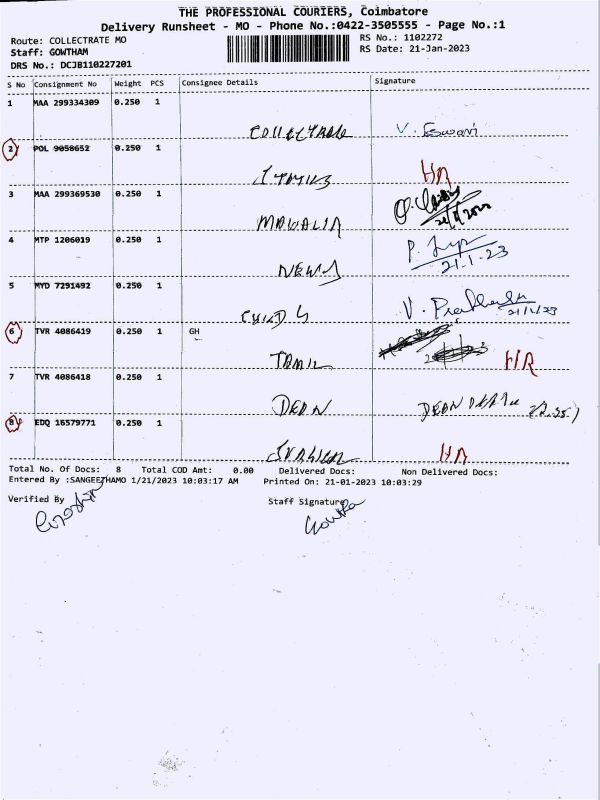 THE PROFESSIONAL COURIERS, Coimbatore
Delivery Runsheet - MO - Phone No.:0422-3505555 - Page No.:1
Route: COLLECTRATE MO
Staff: GOWTHAM
DRS No.: DCJB110227201
RS No.: 1102272
RS Date: 21-Jan-2023
S No Consignment No Weight PCS Consignee Details Signature
1 MAA 299334309 0.250 1
COLLECTRATE V. Eswari
2 POL 9058652 0.250 1
HR
3 MAA 299369530 0.250 1
4 MTP 1206019 0.250 1
NEWS 21.1.23
5 MYD 7291492 0.250 1
CHILD S V. Prabhakar 21/1/23
6 TVR 4086419 0.250 1 GH
TAMIL HR
7 TVR 4086418 0.250 1
DEAN DEAN
8 EDQ 16579771 0.250 1
HR
Total No. Of Docs: 8 Total COD Amt: 0.00 Delivered Docs: Non Delivered Docs:
Entered By :SANGEETHAMO 1/21/2023 10:03:17 AM Printed On: 21-01-2023 10:03:29
Verified By Staff Signature
Gowtha